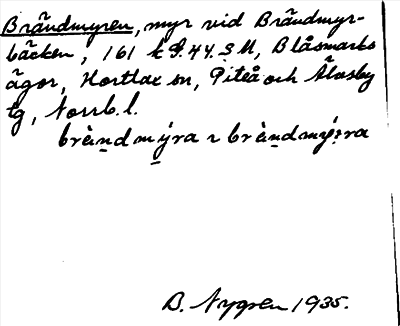 Brändmyren, myr vid Brändmyr-
bäcken, 161 k S.44. S M, Blåsmarks
ägor, Hortlax sn, Piteå och Älvsby
tg, Norrb. l.
brànd mýra ~ bràndmýrra
B. Nygren 1935.